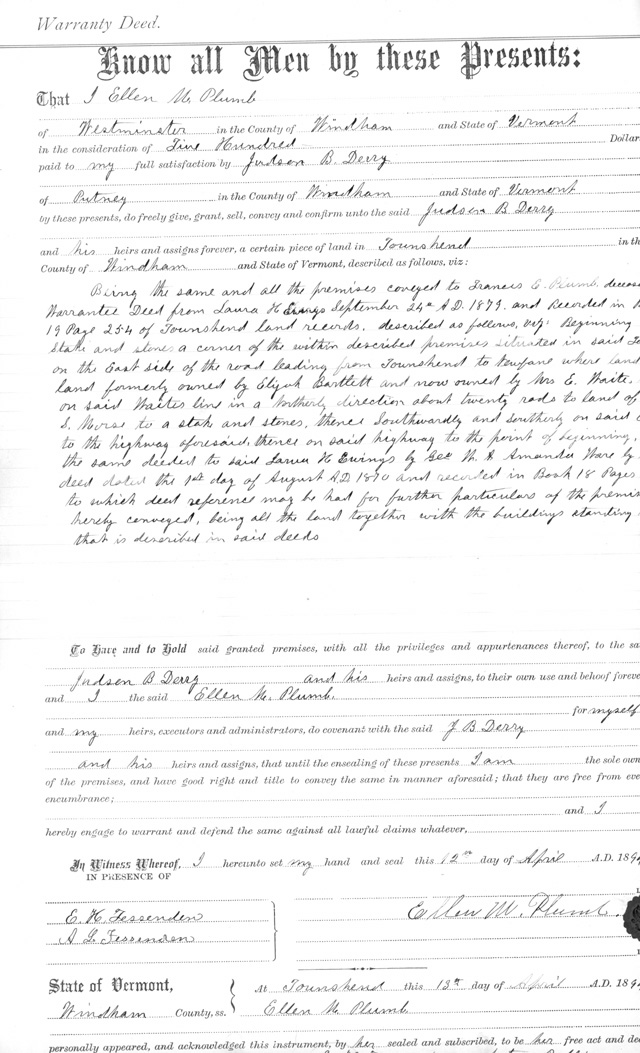 Warranty Deed.
Know all Men by these Presents:
That I Ellen M. Plumb
of Westminster in the County of Windham and State of Vermont
in the consideration of Five Hundred Dollar
paid to my full satisfaction by Judson B. Derry
of Putney in the County of Windham and State of Vermont
by these presents, do freely give, grant, sell, convey and confirm unto the said Judson B Derry
and his heirs and assigns forever, a certain piece of land in Townshend in th
County of Windham and State of Vermont, described as follows, viz:
Being the same and all the premises coveyed to Francis E. Plumb, deceas
Warrantee Deed from Laura H Ewings September 24th A.D. 1879, and Recorded in B
19 Page 254 of Townshend land records, described as follows, viz: Beginning
Stake and stones a corner of the within described premises situated in said To
on the East side of the road leading from Townshend to Newfane where land
land formerly owned by Elijah Bartlett and now owned by Mrs E. Waite,
on said Waites line in a Northerly direction about twenty rods to land of
S. Morse to a stak and stones, thence Southwardly and Southerly on said
to the highway aforesaid, thence on said highway to the point of beginning,
the same deeded to said Laura H Ewings by Geo W. & Amanda Ware by
deed dated the 1st day of August A.D 1870 and recorded in Book 18 Pages
to which deed reference may be had for further particulars of the premis
hereby conveyed, being all the land together with the buildings standing
that is described in said deeds
To Have and to Hold said granted premises, with all the privileges and appurtenances thereof, to the sa
Judson B Derry and his heirs and assigns, to their own use and behoof foreve
and I the said Ellen M. Plumb.
for myself
and my heirs, executors and administrators, do covenant with the said J B Derry
and his heirs and assigns, that until the ensealing of these presents I am the sole own
of the premises, and have good right and title to convey the same in manner aforesaid; that they are free from eve
encumbrance;
and I
hereby engage to warrant and defend the same against all lawful claims whatever,
In Witness Whereof, I hereunto set my hand and seal this 12th day of April A.D. 189
IN PRESENCE OF
E. H. Fessenden
A L Fessenden
Ellen M. Plumb
State of Vermont,
Windham County, ss.
At Townshend this 13th day of April A.D. 189
Ellen M Plumb
personally appeared, and acknowledged this instrument, by her sealed and subscribed, to be her free act and de